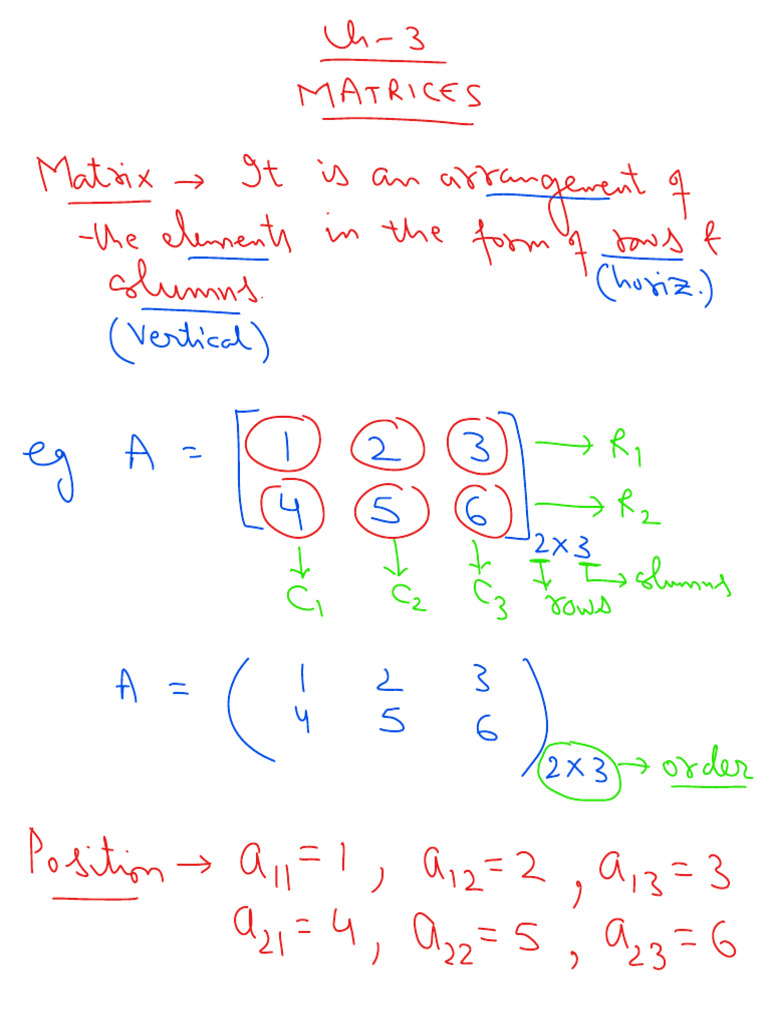 Ch-3
MATRICES
Matrix → It is an arrangement of
the elements in the form of rows &
columns. (horiz.)
(Vertical)
eg A = [ 1 2 3 → R1
4 5 6 ] → R2
2×3
C1 C2 C3 rows columns
A = ( 1 2 3
4 5 6 )
2×3 → order
Position → a11 = 1, a12 = 2, a13 = 3
a21 = 4, a22 = 5, a23 = 6